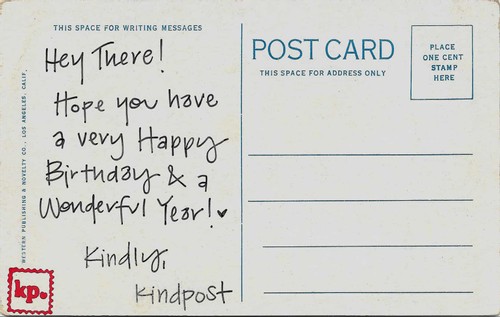 THIS SPACE FOR WRITING MESSAGES
Hey There!
Hope you have
a very Happy
Birthday & a
Wonderful Year!♥
Kindly,
Kindpost
kp.
WESTERN PUBLISHING & NOVELTY CO., LOS ANGELES, CALIF.
POST CARD
THIS SPACE FOR ADDRESS ONLY
PLACE
ONE CENT
STAMP
HERE